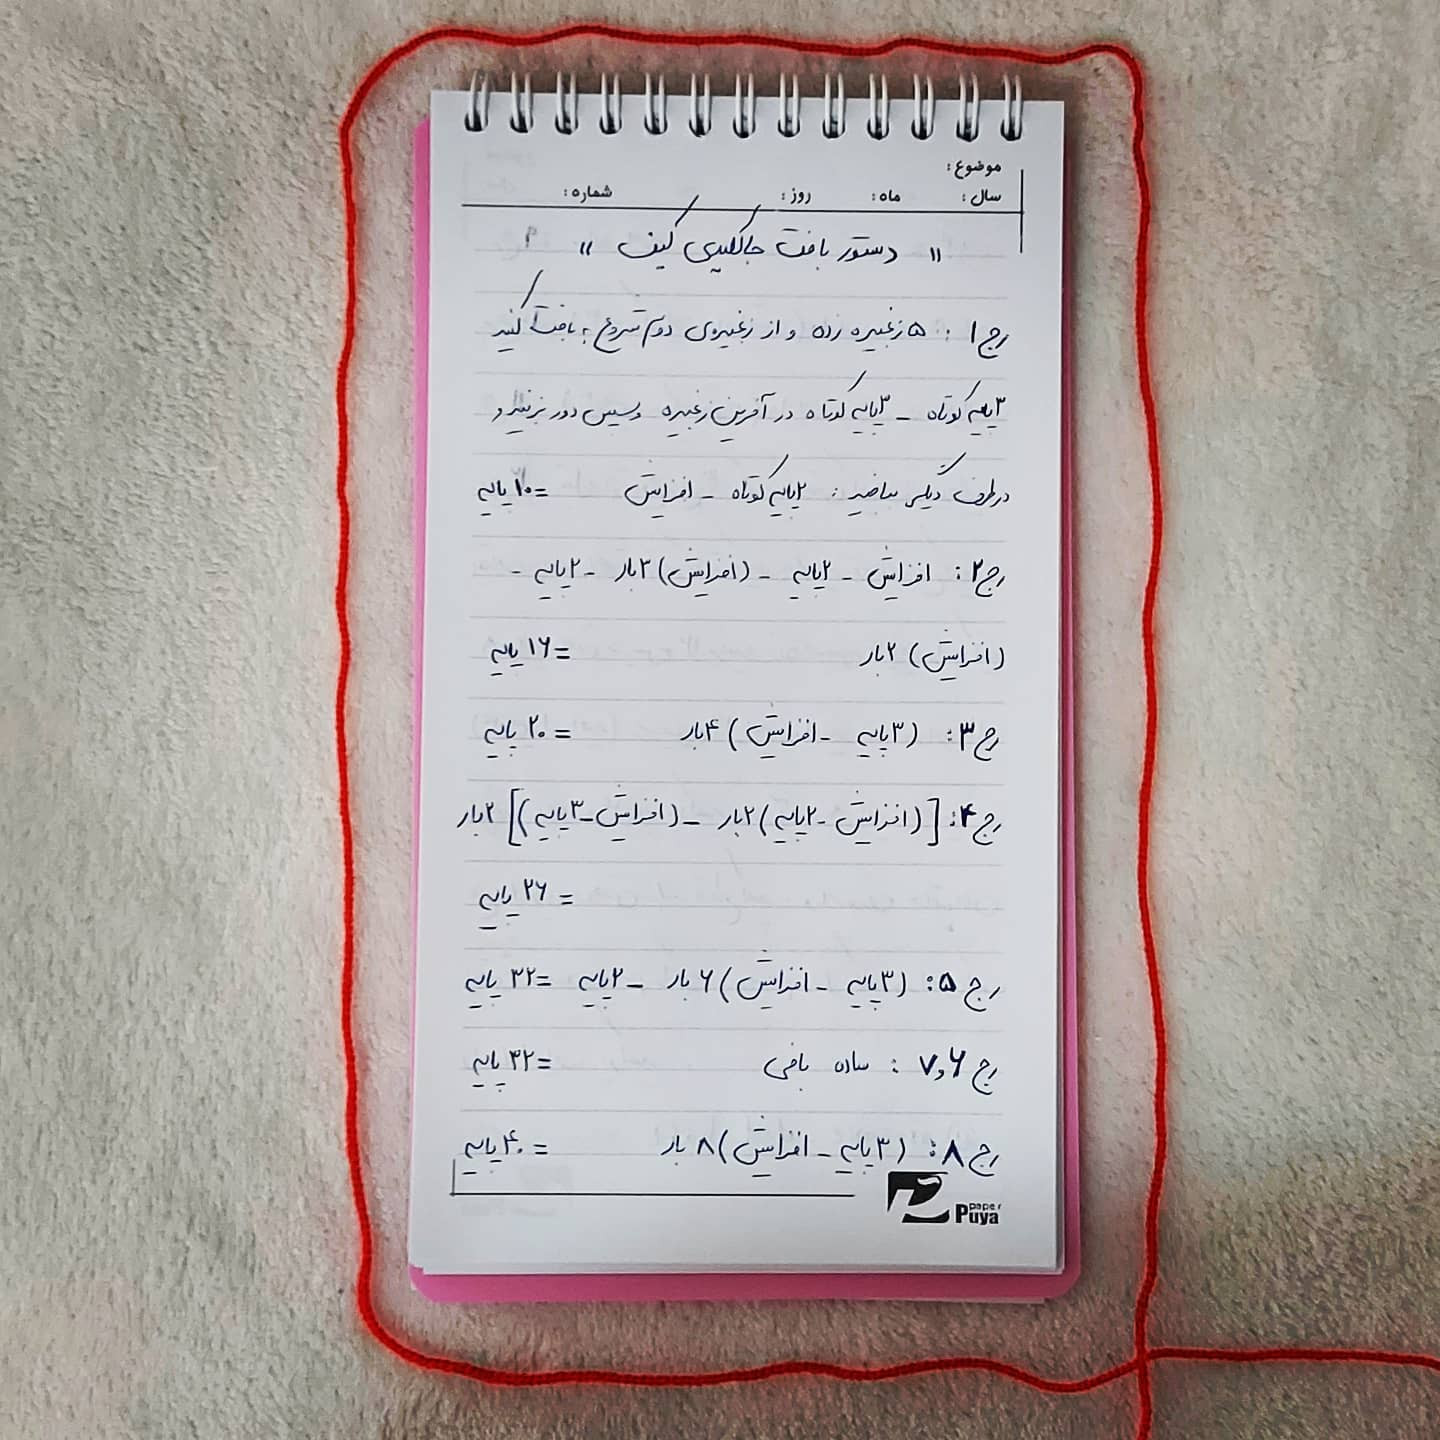 موضوع:
سال: ماه: روز: شماره:
" دستور بافت جاکلیدی کیف "
رج ۱: ۵ زنجیره زده و از زنجیره‌ی دوم شروع به بافت کنید
۳ پایه کوتاه _ ۳ پایه کوتاه در آخرین زنجیره و سپس دور بزنید و
در طرف دیگر بسازید: ۲ پایه کوتاه _ افزایش =۱۰ پایه
رج ۲: افزایش _ ۲ پایه _ (افزایش) ۳ بار _ ۲ پایه _
(افزایش) ۲ بار =۱۶ پایه
رج ۳: (۳ پایه _ افزایش) ۴ بار =۲۰ پایه
رج ۴: [(افزایش _ ۲ پایه) ۲ بار _ (افزایش _ ۳ پایه)] ۲ بار
=۲۶ پایه
رج ۵: (۳ پایه _ افزایش) ۶ بار _ ۲ پایه =۳۲ پایه
رج ۶ و ۷: ساده بافی =۳۲ پایه
رج ۸: (۳ پایه _ افزایش) ۸ بار =۴۰ پایه
paper
Puya